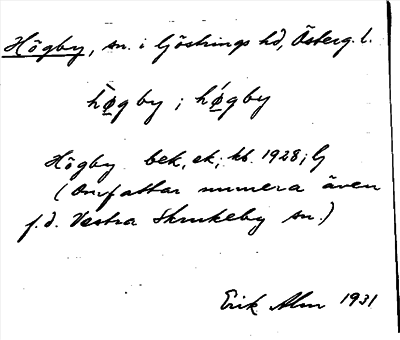 Högby, sn. i Göstrings hd, Österg. l.
hø̀gby ; hǿgby
Högby bek, ek; kb. 1928; G
(Omfattar numera även
f.d. Västra Skrukeby sn.)
Erik Alm 1931